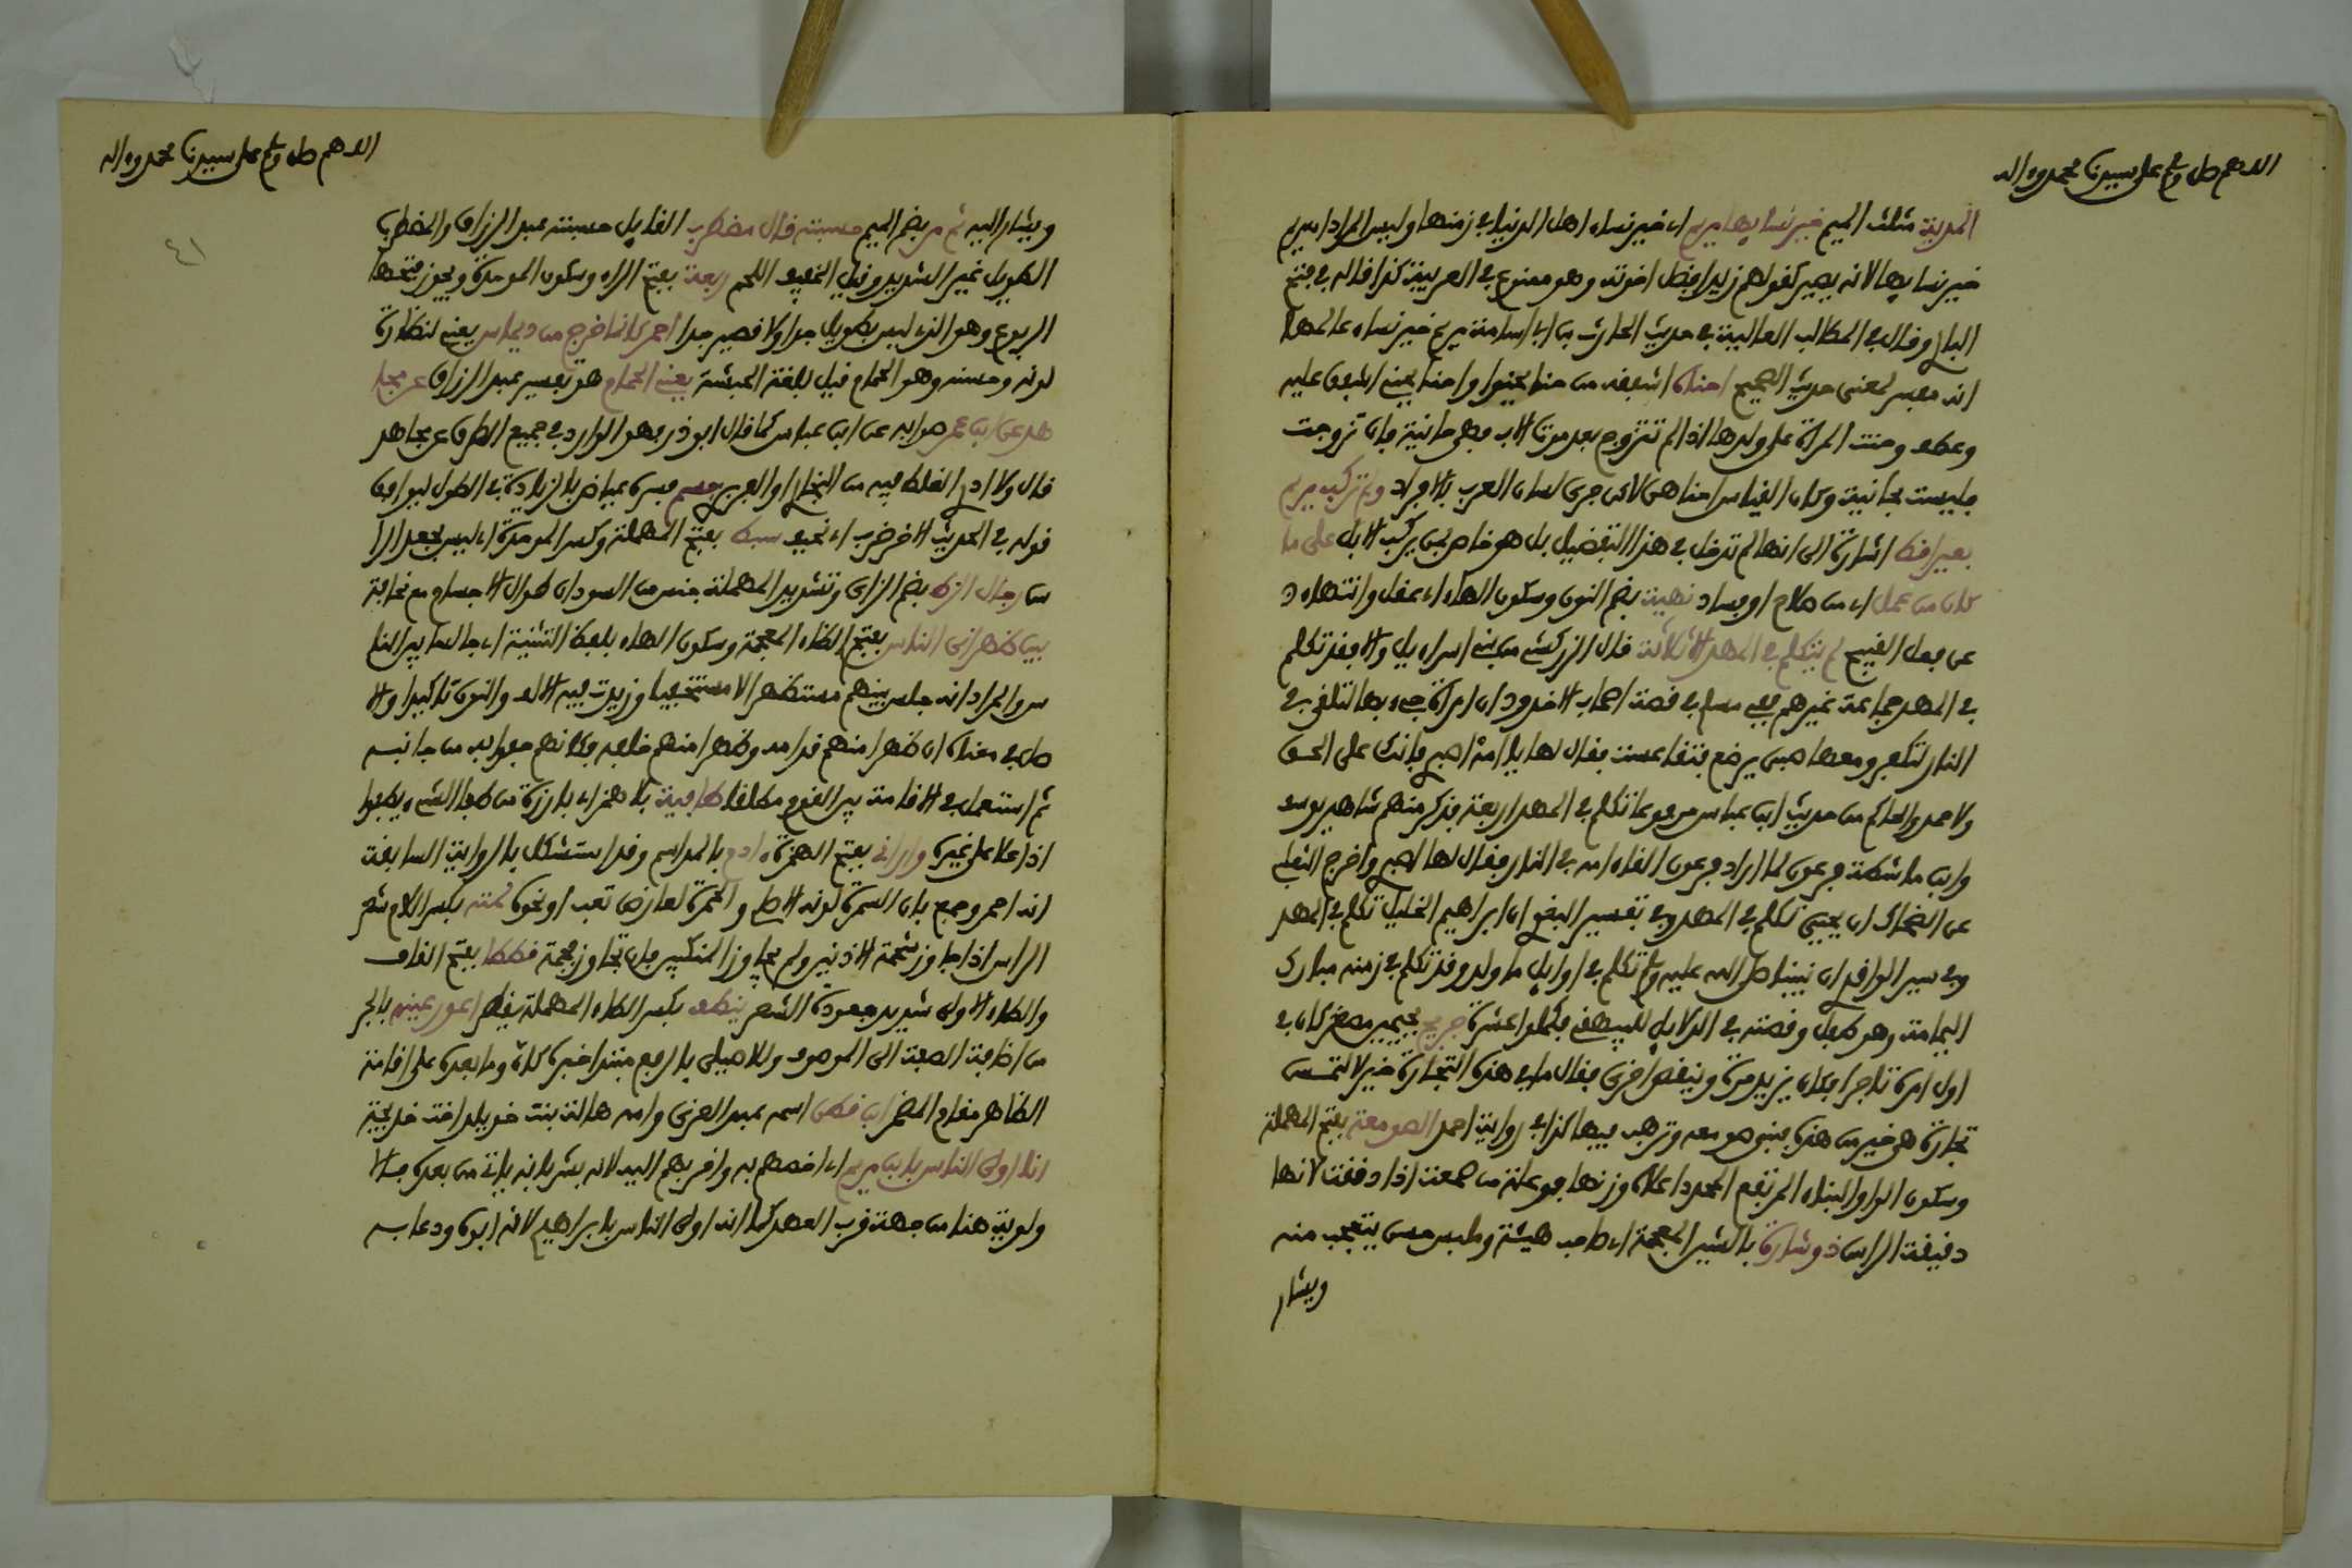 اللهم صل وسلم على سيدنا محمد وآله
المدينة مثلث الميم خير نسايها مريم اي خير نساء اهل الدنيا في زمنها وليس المراد ان مريم
خير نسايها لانه يصير كقولهم زيد افضل اخوته وهو ممنوع في العربية كذا قاله في فتح
الباري وقال في المطالب العالية في حديث الحارث بن ابي اسامة مريم خير نساء عالمها
انه مفسر لمعنى حديث الصحيح احناه اشفقه من حنا يحنو او احنا يحني اشفق عليه
وعطف وحنت المراة على ولدها اذا لم تتزوج بعد موت الاب فهي حانية فان تزوجت
فليست بحانية وكان القياس احناهن لاكن جرى لسان العرب بالافراد ولم تركب مريم
بعيرا قط اشارة الى انها لم تدخل في هذا التفضيل بل هو خاص بمن يركب الابل على ما
كان من عمل اي من صلاح او فساد نهية بضم النون وسكون الهاء اي عقل وانتهاء
عن فعل القبيح لم يتكلم في المهد الا ثلاثة قال الزركشي من بني اسراءيل والا فقد تكلم
في المهد جماعة غيرهم ففي مسلم في قصة اصحاب الاخدود ان امراة جيء بها لتلقى في
النار لتكفر ومعها صبي يرضع فتقاعست فقال لها يا امه اصبري فانك على الحق
ولاحمد والحاكم من حديث ابن عباس مرفوعا تكلم في المهد اربعة فذكر منهم شاهد يوسف
وابن ماشطة فرعون لما اراد فرعون القاء امه في النار فقال لها اصبري واخرج الثعلبي
عن الضحاك ان يحيى تكلم في المهد وفي تفسير البغوي ان ابراهيم الخليل تكلم في المهد
وفي سير الواقدي ان نبينا صلى الله عليه وسلم تكلم في اوايل ما ولد وقد تكلم في زمنه مبارك
اليمامة وهو طفل وقصته في الدلايل للبيهقي فكملوا عشرة جريج بجيمين مصغر كان في
اول امره تاجرا فكان يزيد مرة وينقص اخرى فقال ما في هذه التجارة خير لالتمسن
تجارة هي خير من هذه فبنى صومعة وترهب فيها كذا في رواية احمد الصومعة بفتح المهملة
وسكون الواو البناء المرتفع المحدد اعلاه وزنها فوعلة من صمعت اذا دققت لانها
دقيقة الراس ذو شارة بالشين المعجمة اي صاحب هيئة وملبس حسن يتعجب منه
ويشار
اللهم صل وسلم على سيدنا محمد وآله
٤١
ويشار اليه ثم مر بضم الميم حسبته قال مضطرب القايل حسبته عبد الرزاق والمضطرب
الطويل غير الشديد وقيل الخفيف اللحم ربعة بفتح الراء وسكون الموحدة ويجوز فتحها
المربوع وهو الذي ليس بطويل جدا ولا قصير جدا احمر كانما خرج من ديماس يعني لنظارة
لونه وحسنه وهو الحمام قيل بلغة الحبشة يعني الحمام هو تفسير عبد الرزاق عن مجا
هد عن ابن عمر صوابه عن ابن عباس كما قال ابو ذر وهو الوارد في جميع الطرق عن مجاهد
قال ولا ادري الغلط فيه من البخاري او الفربري جسيم فسره عياض بالزيادة في الطول ليوافق
قوله في الحديث الاخر ضرب اي نحيف سبط بفتح المهملة وكسر الموحدة اي ليس بجعد
من رجال الزط بضم الزاي وتشديد المهملة جنس من السودان طوال الاجسام مع نحافة
بين ظهراني الناس بفتح الظاء المعجمة وسكون الهاء بلفظ التثنية اي جالسا بين النا
س والمراد انه جلس بينهم مستظهرا لا مستخفيا وزيدت فيه الالف والنون تاكيدا والا
صل في معناه ان ظهرا منهم قدامه وظهرا منهم خلفه وكانهم حفوا به من جانبيه
ثم استعمل في الاقامة بين القوم مطلقا طافية بلا همز اي بارزة من طفا الشيء يطفوا
اذا علا على غيره واراني بفتح الهمزة ادم بالمد اسم وقد استشكل بالرواية السابقة
انه احمر وجمع بان السمرة لونه الاصلي والحمرة لعارض تعب او نحوه لمته بكسر اللام شعر
الراس اذا جاوز شحمة الاذنين ولم يجاوز المنكبين فان تجاوز فجمة قططا بفتح القاف
والطاء الاولى شديد جعودة الشعر ينطف بكسر الطاء المهملة يقطر اعور عينه بالجر
من اضافة الصفة الى الموصوف وللاصيلي بالرفع مبتدا خبره كانه وما بعده على اقامة
الظاهر مقام المضمر ابن قطن اسمه عبد العزى وامه هالة بنت خويلد اخت خديجة
انا اولى الناس بابن مريم اي اخصهم به واقربهم اليه لانه بشر بانه ياتي من بعده فالا
ولوية هنا من جهة قرب العهد كما انه اولى الناس بابراهيم لانه ابوه ودعا به